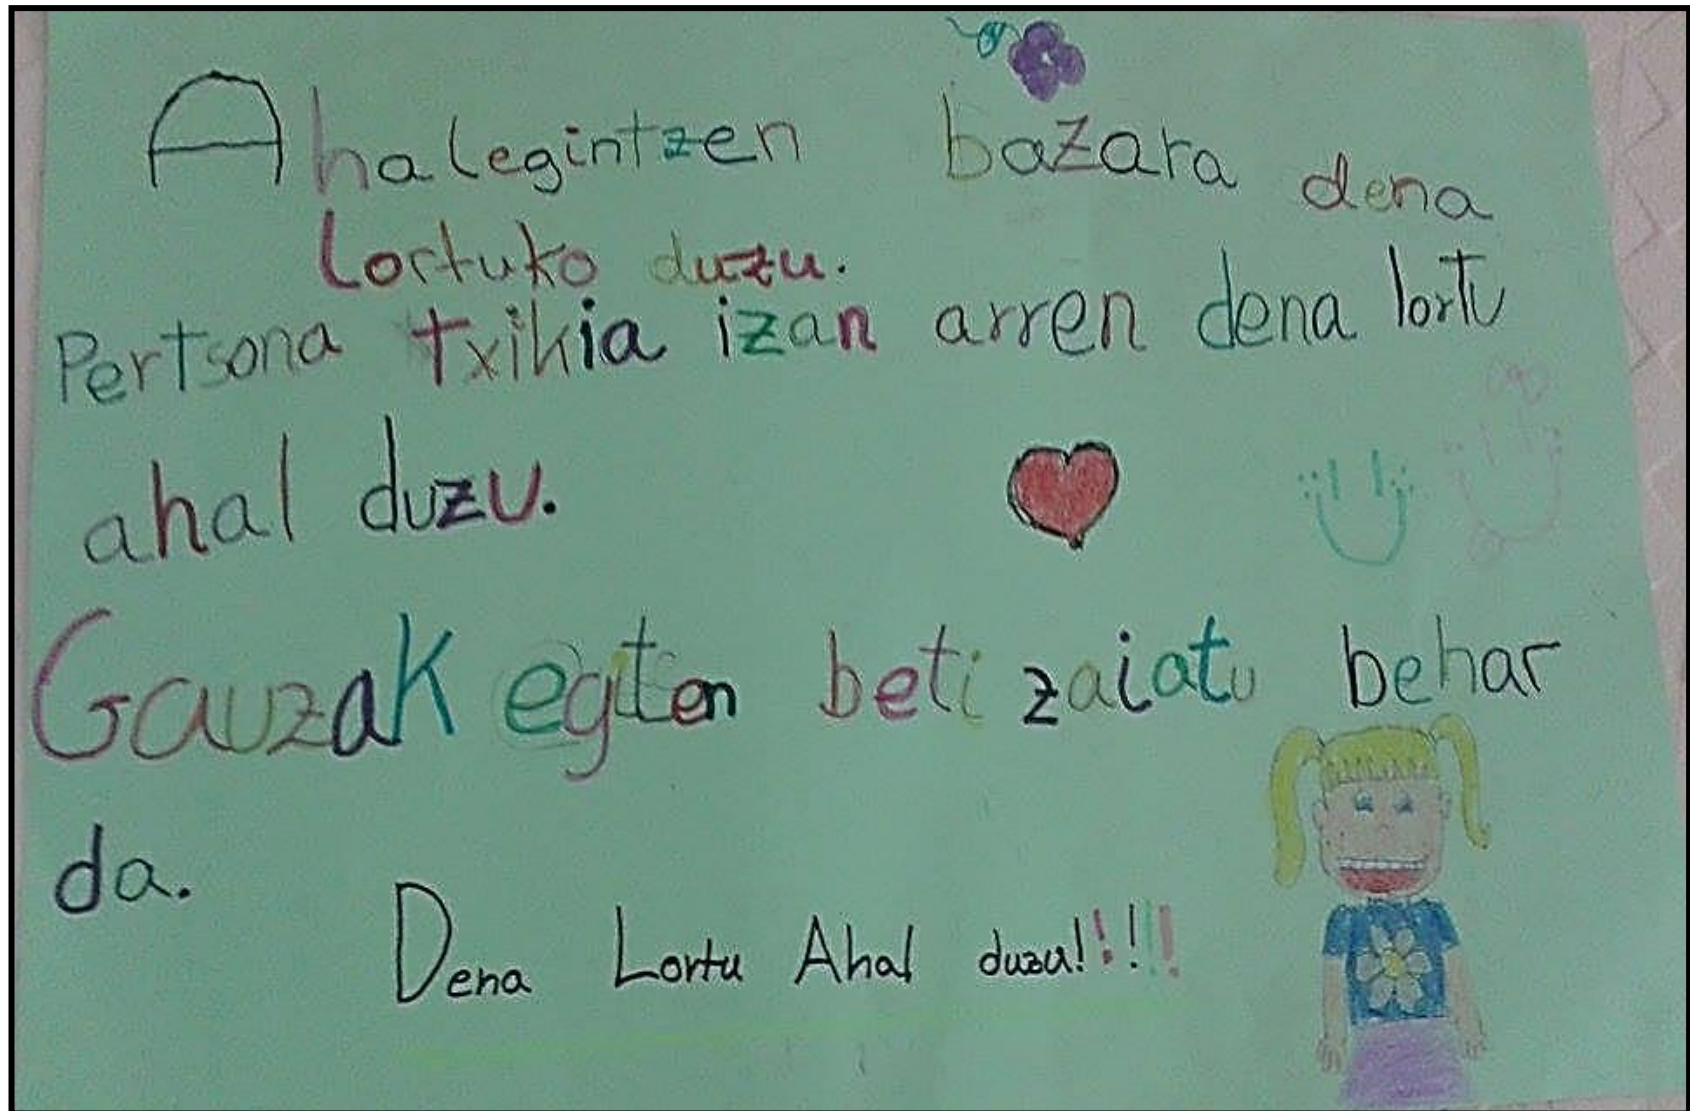 Ahalegintzen bazara dena
Lortuko duzu.
Pertsona txikia izan arren dena lortu
ahal duzu.
Gauzak egiten beti zaiatu behar
da.
Dena Lortu Ahal duzu!!!!!